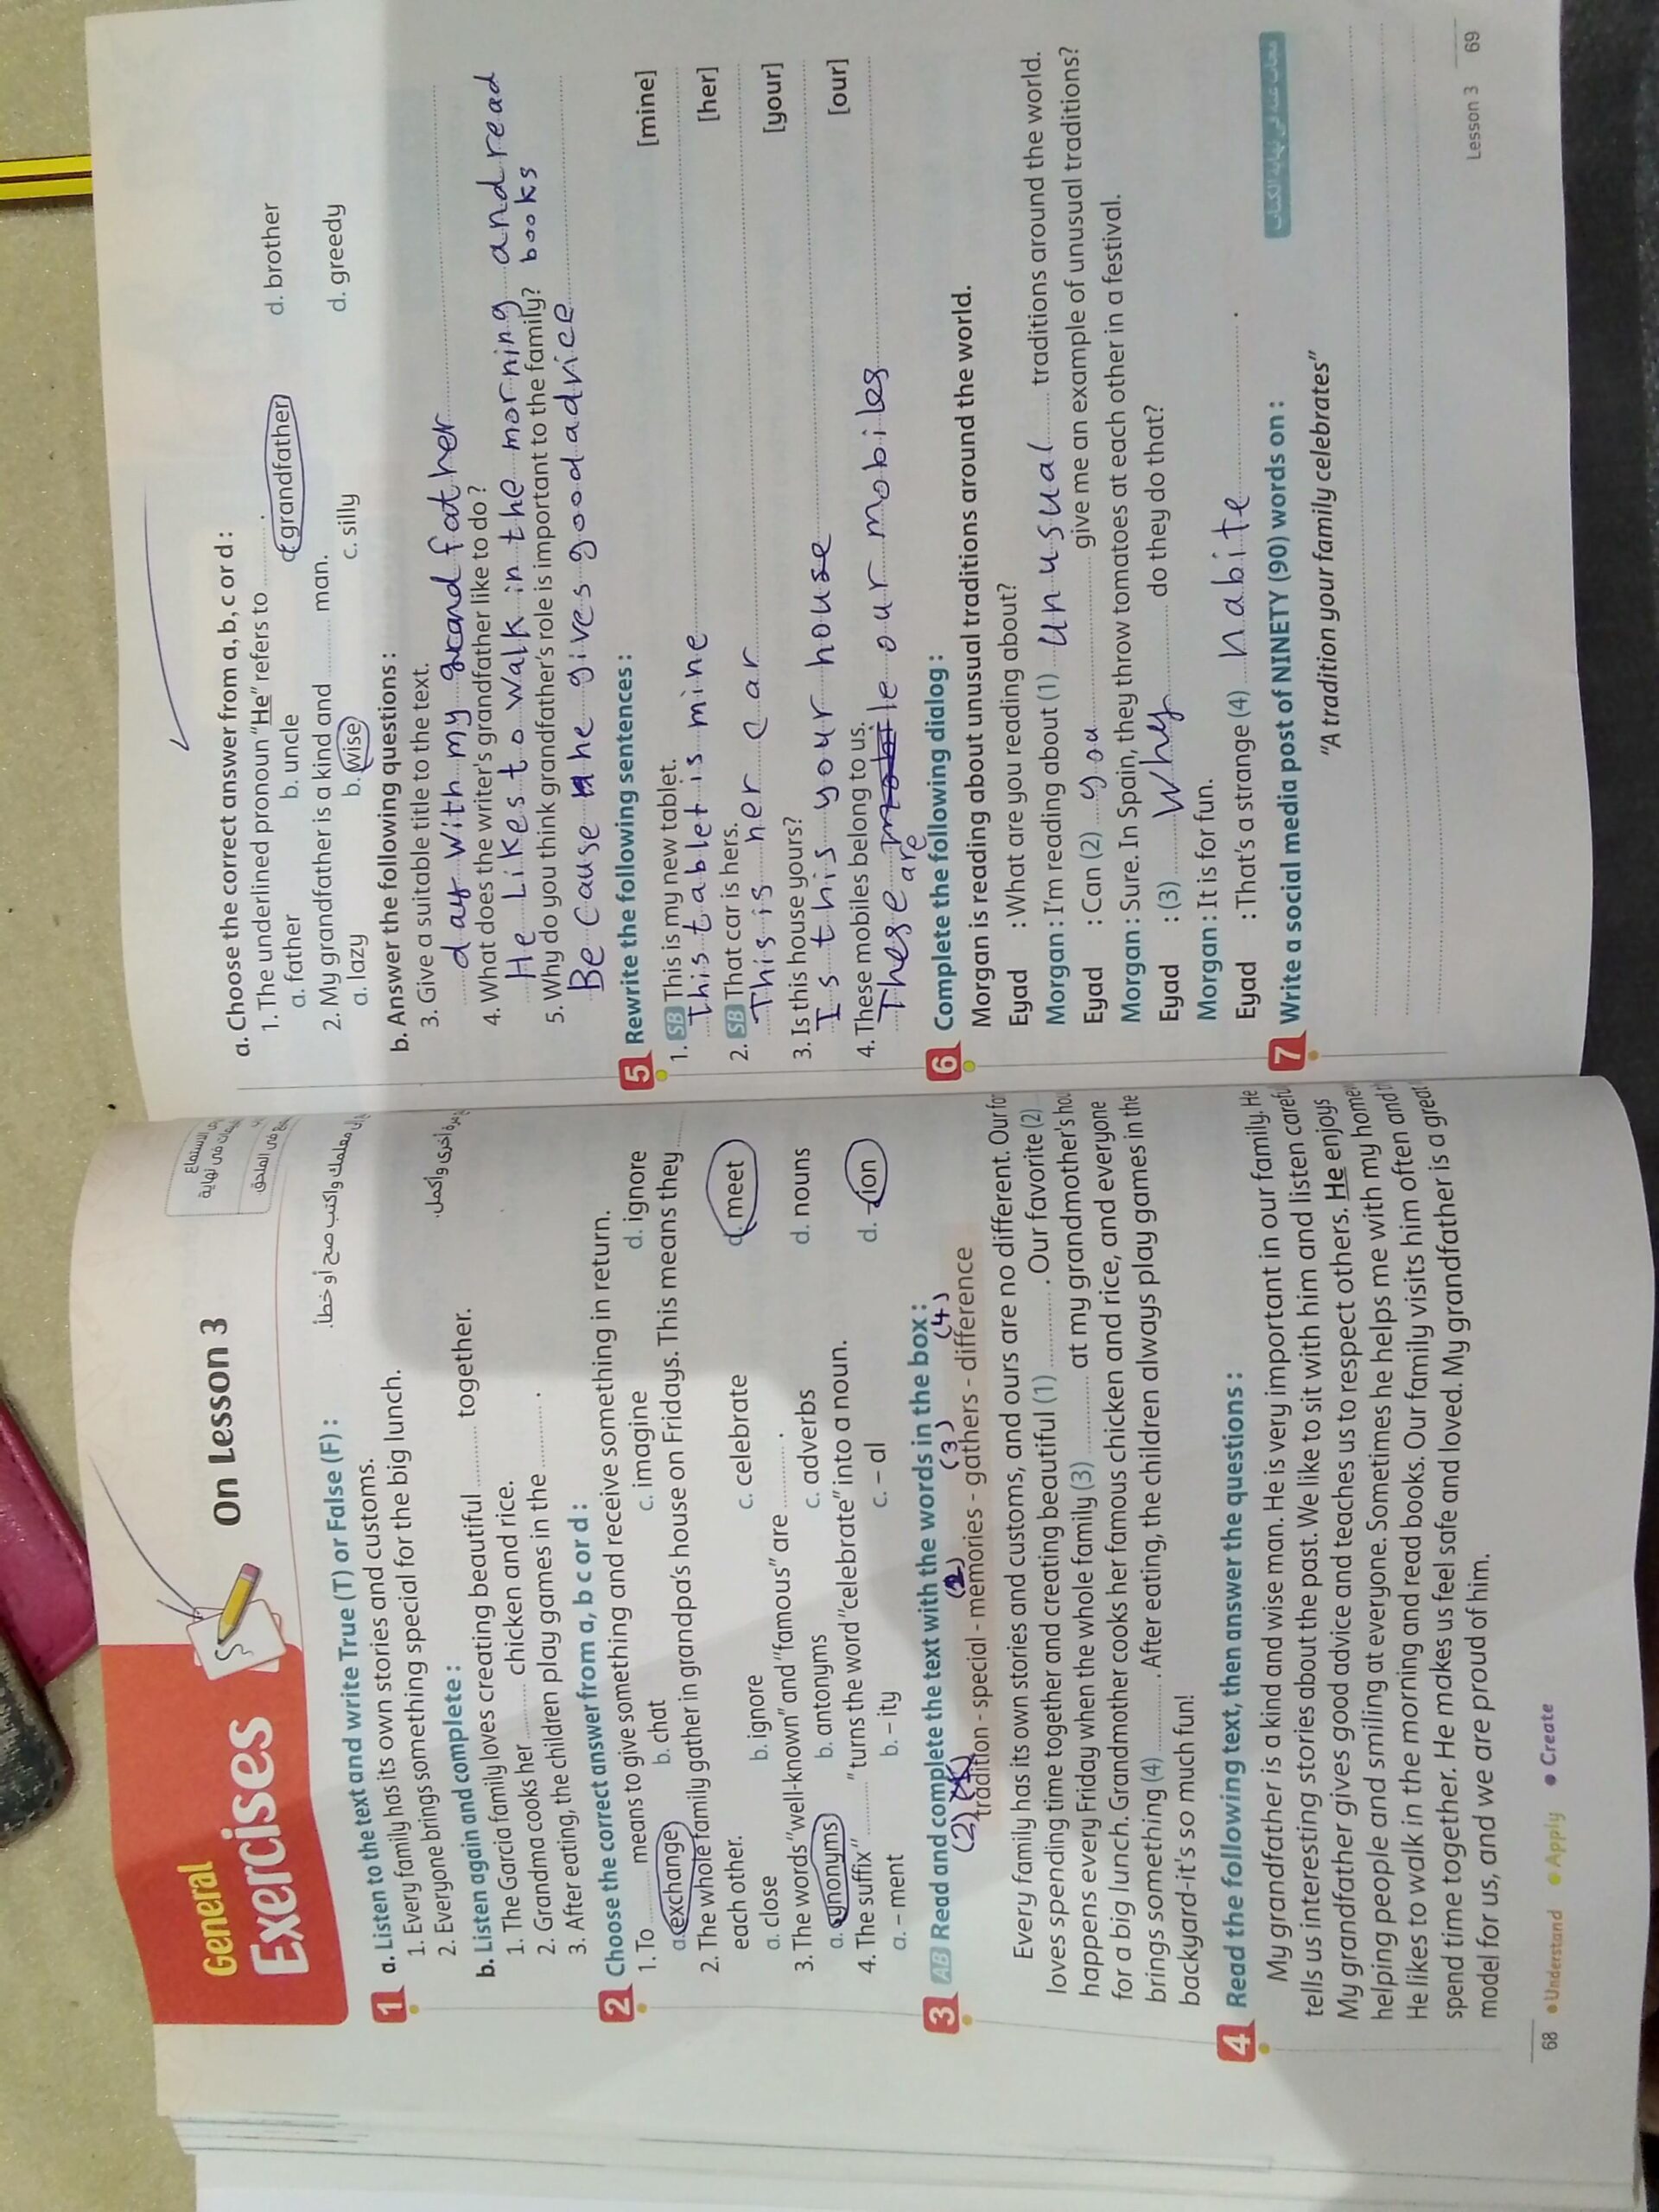 General
Exercises
On Lesson 3
1 a. Listen to the text and write True (T) or False (F) :
1. Every family has its own stories and customs.
2. Everyone brings something special for the big lunch.
b. Listen again and complete :
1. The Garcia family loves creating beautiful ............ together.
2. Grandma cooks her ............ chicken and rice.
3. After eating, the children play games in the ............ .
2 Choose the correct answer from a, b c or d :
1. To ............ means to give something and receive something in return.
a. exchange b. chat c. imagine d. ignore
2. The whole family gather in grandpa's house on Fridays. This means they ............
each other.
a. close b. ignore c. celebrate d. meet
3. The words "well-known" and "famous" are ............ .
a. synonyms b. antonyms c. adverbs d. nouns
4. The suffix "............" turns the word "celebrate" into a noun.
a. – ment b. – ity c. – al d. – ion
3 AB Read and complete the text with the words in the box :
(2) (1) (3) (4)
tradition - special - memories - gathers - difference
Every family has its own stories and customs, and ours are no different. Our
loves spending time together and creating beautiful (1) ............ . Our favorite (2)
happens every Friday when the whole family (3) ............ at my grandmother's
for a big lunch. Grandmother cooks her famous chicken and rice, and everyone
brings something (4) ............ . After eating, the children always play games in the
backyard-it's so much fun!
4 Read the following text, then answer the questions :
My grandfather is a kind and wise man. He is very important in our family. He
tells us interesting stories about the past. We like to sit with him and listen
My grandfather gives good advice and teaches us to respect others. He enjoys
helping people and smiling at everyone. Sometimes he helps me with my
He likes to walk in the morning and read books. Our family visits him often and
spend time together. He makes us feel safe and loved. My grandfather is a great
model for us, and we are proud of him.
68 • Understand • Apply • Create
a. Choose the correct answer from a, b, c or d :
1. The underlined pronoun "He" refers to ............ .
a. father b. uncle c. grandfather d. brother
2. My grandfather is a kind and ............ man.
a. lazy b. wise c. silly d. greedy
b. Answer the following questions :
3. Give a suitable title to the text.
day with my grand father
4. What does the writer's grandfather like to do ?
He Likes to walk in the morning and read
books
5. Why do you think grandfather's role is important to the family?
Be cause he gives good advice
5 Rewrite the following sentences :
1. SB This is my new tablet. [mine]
This tablet is mine
2. SB That car is hers. [her]
This is her car
3. Is this house yours? [your]
Is this your house
4. These mobiles belong to us. [our]
These are our mobiles
6 Complete the following dialog :
Morgan is reading about unusual traditions around the world.
Eyad : What are you reading about?
Morgan : I'm reading about (1) unusual traditions around the world.
Eyad : Can (2) you give me an example of unusual traditions?
Morgan : Sure. In Spain, they throw tomatoes at each other in a festival.
Eyad : (3) Why do they do that?
Morgan : It is for fun.
Eyad : That's a strange (4) habite .
7 Write a social media post of NINETY (90) words on :
"A tradition your family celebrates"
Lesson 3 69